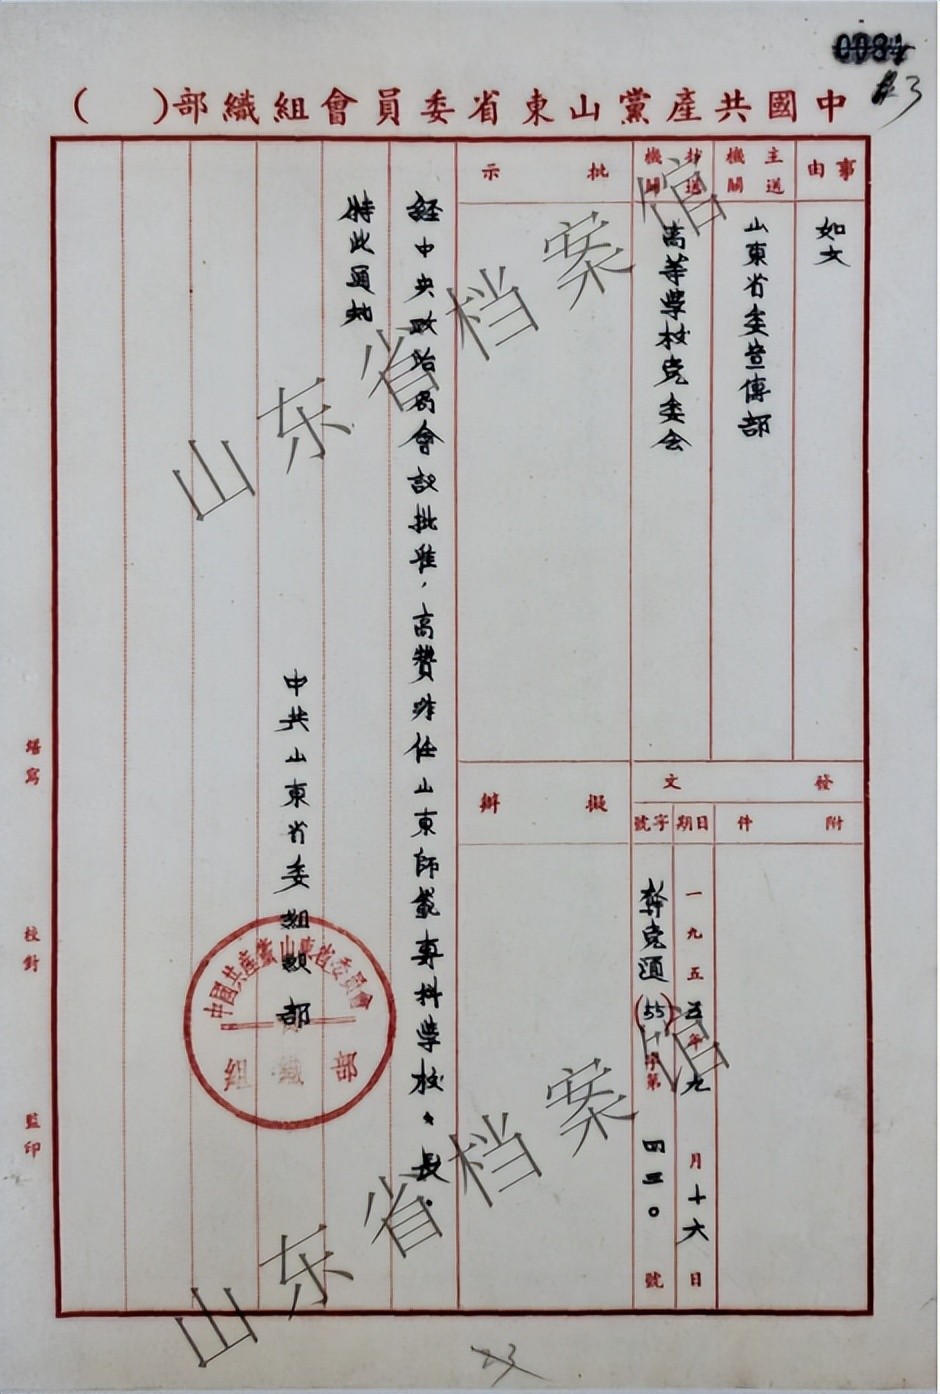 23
中國共產黨山東省委員會組織部( )
事由
如文
主送機關
山東省委宣傳部
抄送機關
高等學校党委会
發文
附件
日期
一九五五年九月十六日
字號
幹党通(55)字第四三〇號
批示
擬辦
經中央政治局會議批准，高贊非任山東師範專科學校校長。
特此通知
中共山東省委組織部
中國共產黨山東省委員會
組織部
繕寫
校對
監印
23
山东省档案馆
山东省档案馆